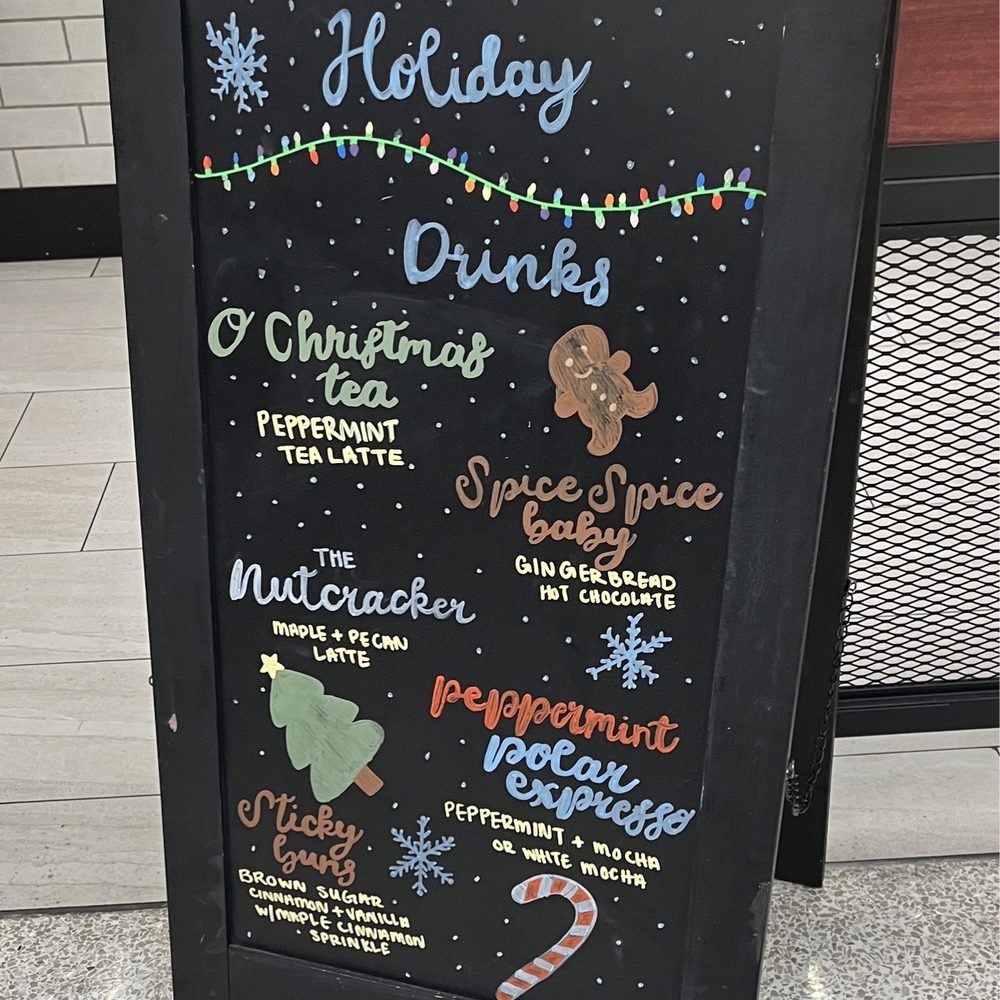 Holiday
Drinks
O Christmas
tea
PEPPERMINT
TEA LATTE
Spice Spice
baby
GINGERBREAD
HOT CHOCOLATE
THE
Nutcracker
MAPLE + PECAN
LATTE
peppermint
polar
expresso
PEPPERMINT + MOCHA
OR WHITE MOCHA
Sticky
buns
BROWN SUGAR
CINNAMON + VANILLA
W/MAPLE CINNAMON
SPRINKLE